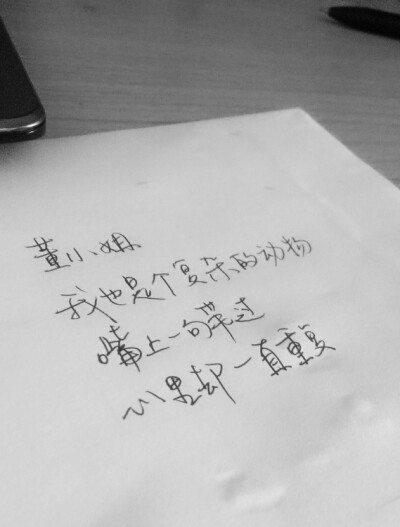 董小姐
我也是个复杂的动物
嘴上一句带过
心里却一直重复